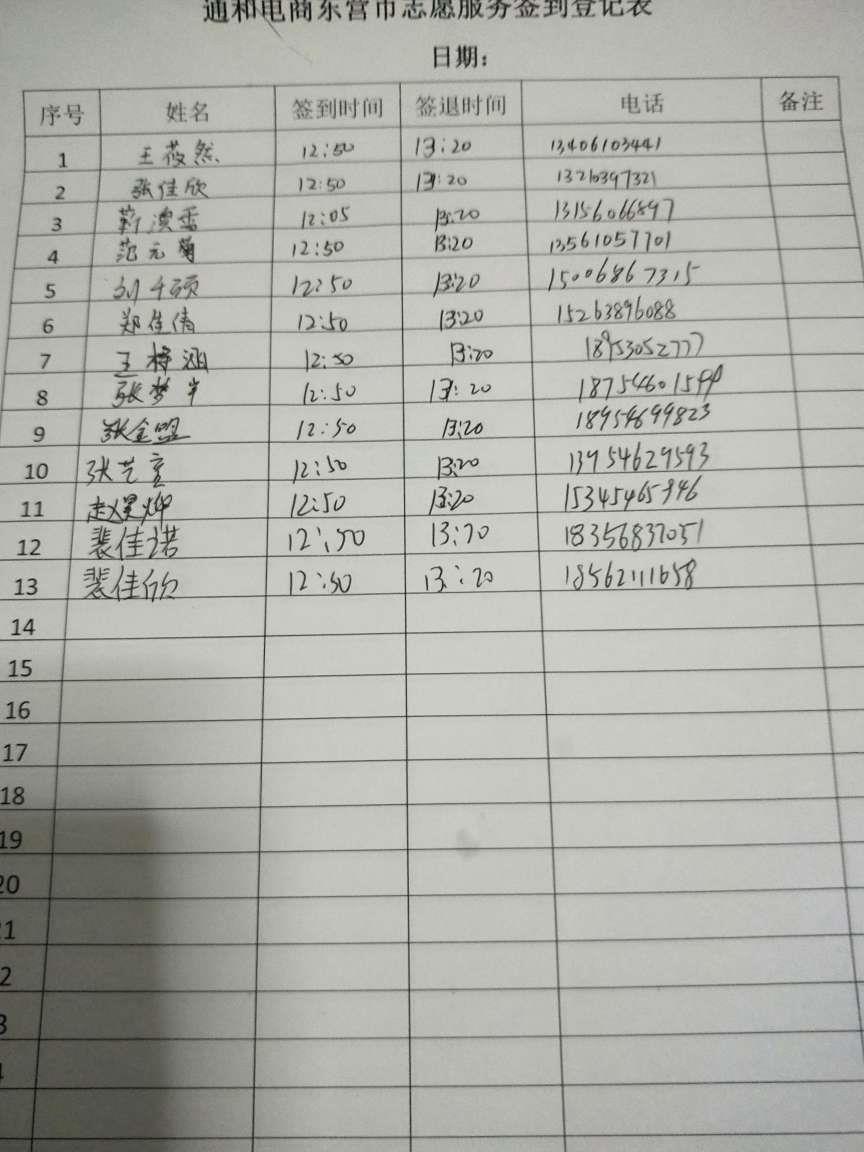 通和电商东营市志愿服务签到登记表
日期：
序号 姓名 签到时间 签退时间 电话 备注
1 王莜然 12:50 13:20 13406103441
2 张佳欣 12:50 13:20 13210397321
3 靳澳雪 12:05 13:20 13156066897
4 范元菊 12:50 13:20 13561057701
5 刘千硕 12:50 13:20 15006867315
6 郑佳倩 12:50 13:20 15263896088
7 王梓涵 12:50 13:20 18953052777
8 张梦 12:50 13:20
9 张金盟 12:50 13:20 18954699823
10 张艺童 12:50 13:20 13954629593
11 赵 12:50 13:20
12 裴佳诺 12:50 13:20 18356837051
13 裴佳欣 12:50 13:20 18562111658
14
15
16
17
18
19
20